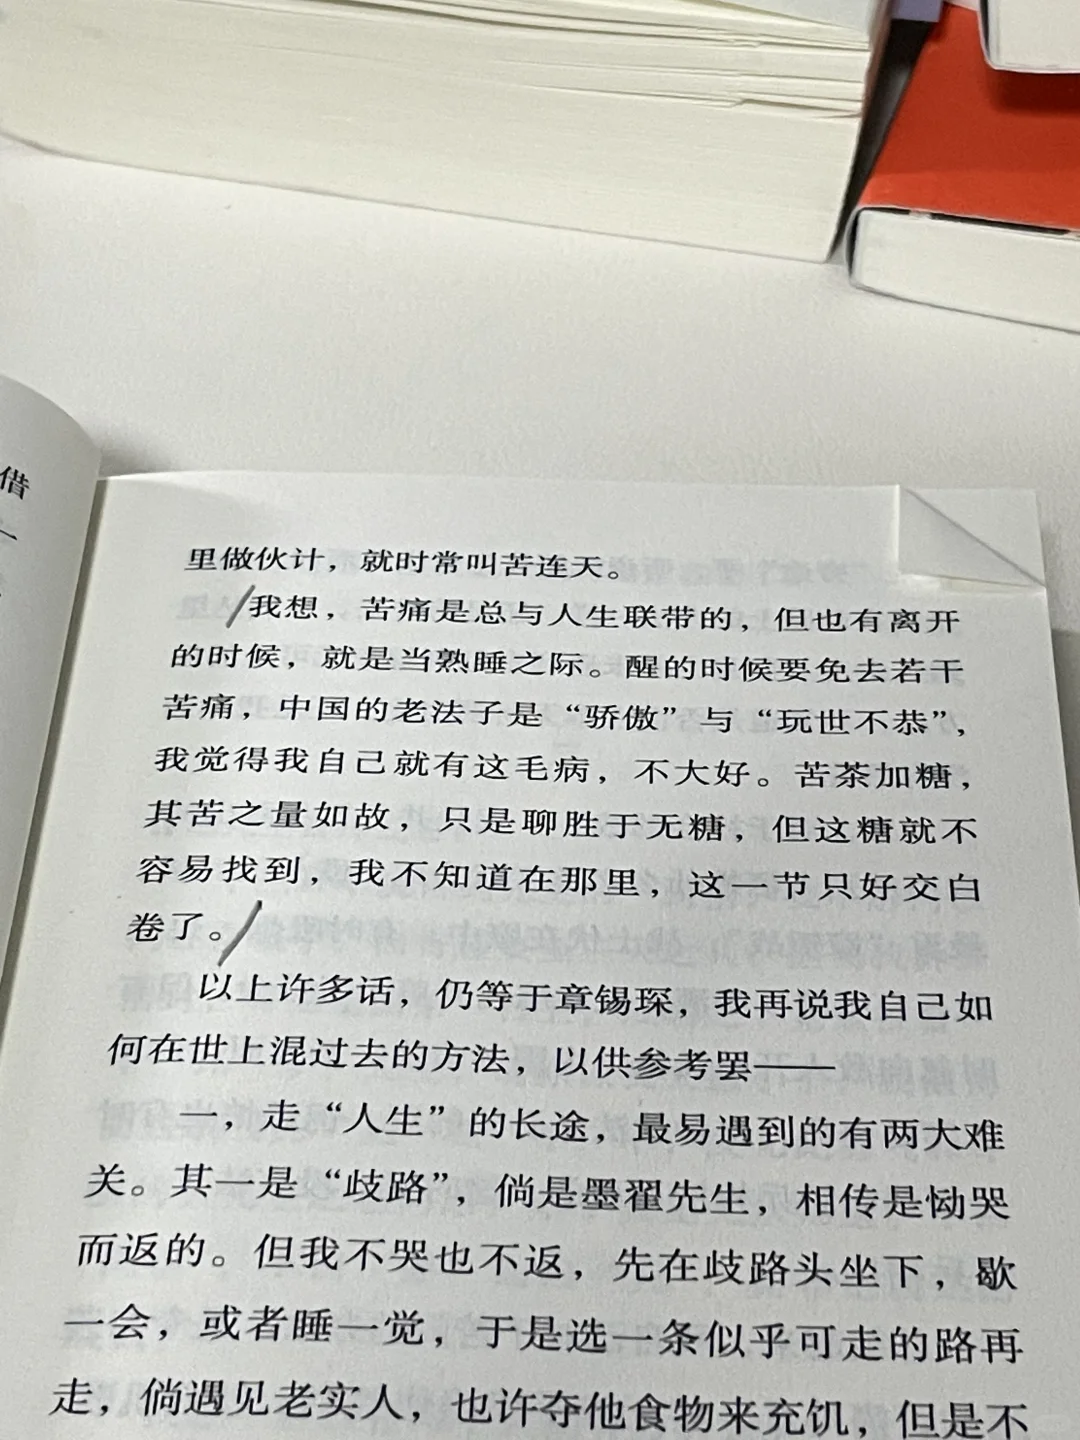 借
一
里做伙计，就时常叫苦连天。
我想，苦痛是总与人生联带的，但也有离开
的时候，就是当熟睡之际。醒的时候要免去若干
苦痛，中国的老法子是“骄傲”与“玩世不恭”，
我觉得我自己就有这毛病，不大好。苦茶加糖，
其苦之量如故，只是聊胜于无糖，但这糖就不
容易找到，我不知道在那里，这一节只好交白
卷了。
以上许多话，仍等于章锡琛，我再说我自己如
何在世上混过去的方法，以供参考罢——
一，走“人生”的长途，最易遇到的有两大难
关。其一是“歧路”，倘是墨翟先生，相传是恸哭
而返的。但我不哭也不返，先在歧路头坐下，歇
一会，或者睡一觉，于是选一条似乎可走的路再
走，倘遇见老实人，也许夺他食物来充饥，但是不